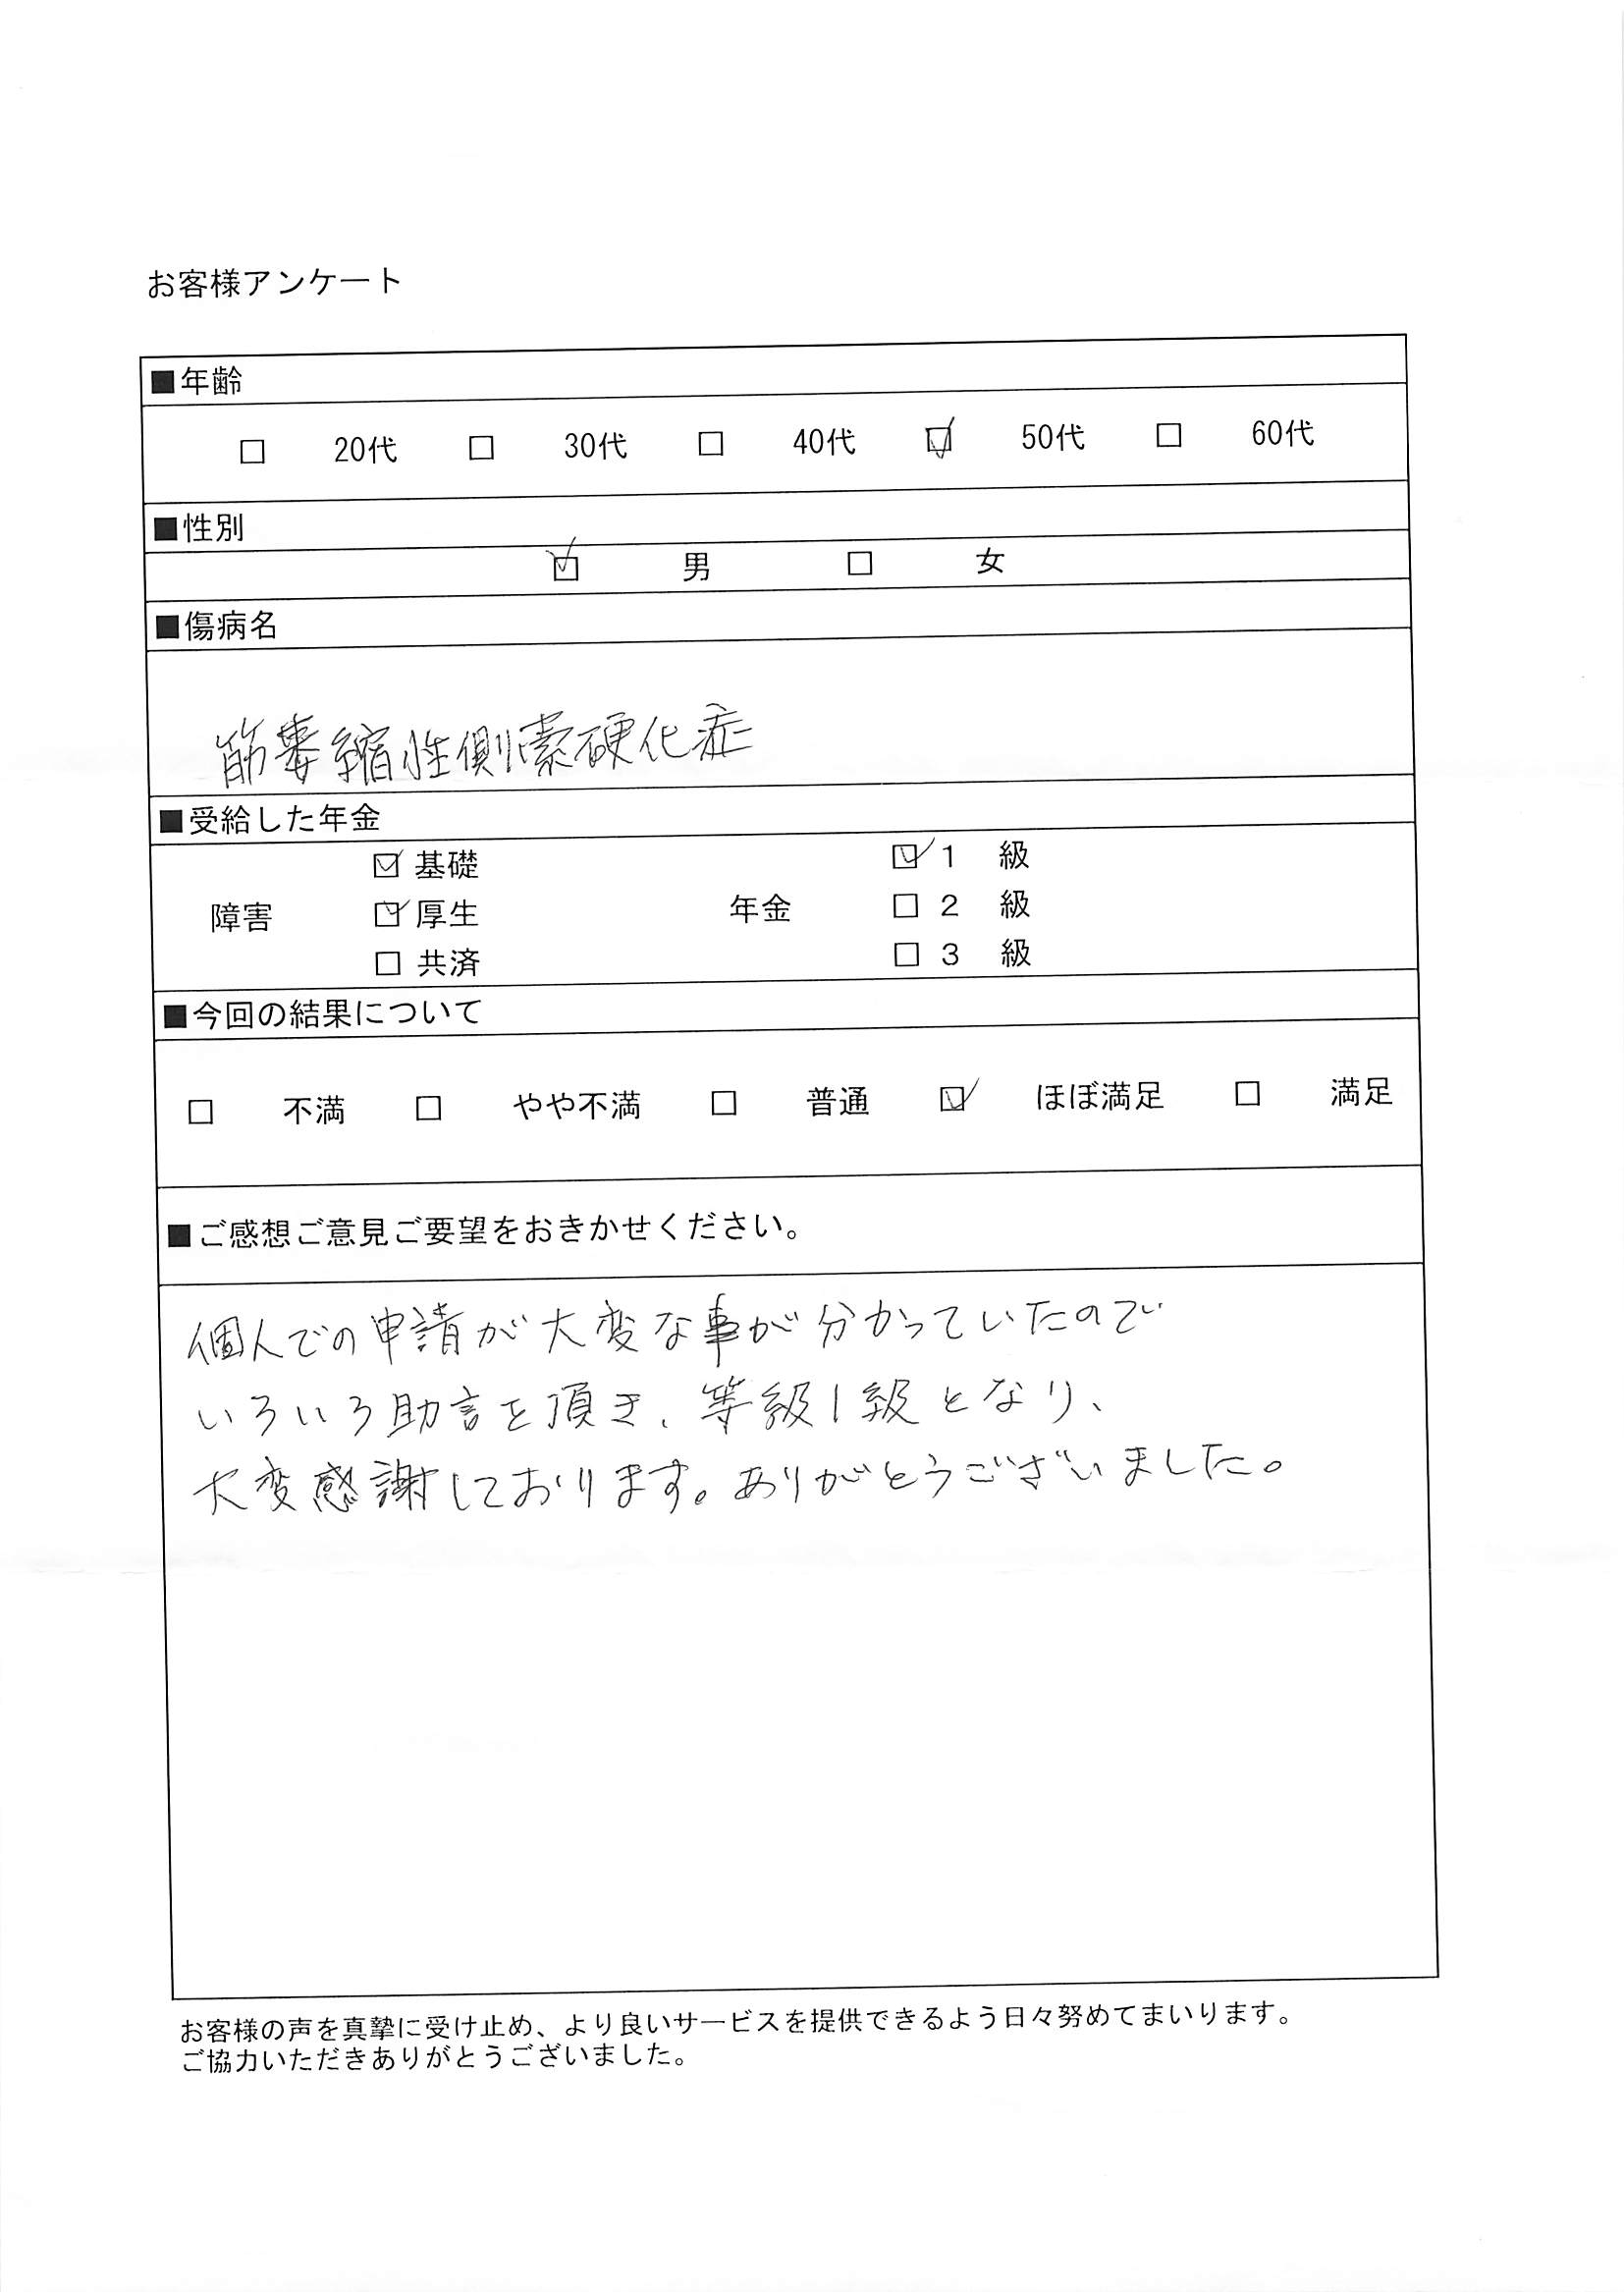 お客様アンケート
■年齢
□ 20代 □ 30代 □ 40代 ☑ 50代 □ 60代
■性別
☑ 男 □ 女
■傷病名
筋萎縮性側索硬化症
■受給した年金
☑ 基礎 ☑ 1 級
障害 ☑ 厚生 年金 □ 2 級
□ 共済 □ 3 級
■今回の結果について
□ 不満 □ やや不満 □ 普通 ☑ ほぼ満足 □ 満足
■ご感想ご意見ご要望をおきかせください。
個人での申請が大変な事が分かっていたので
いろいろ助言を頂き、等級1級となり、
大変感謝しております。ありがとうございました。
お客様の声を真摯に受け止め、より良いサービスを提供できるよう日々努めてまいります。
ご協力いただきありがとうございました。